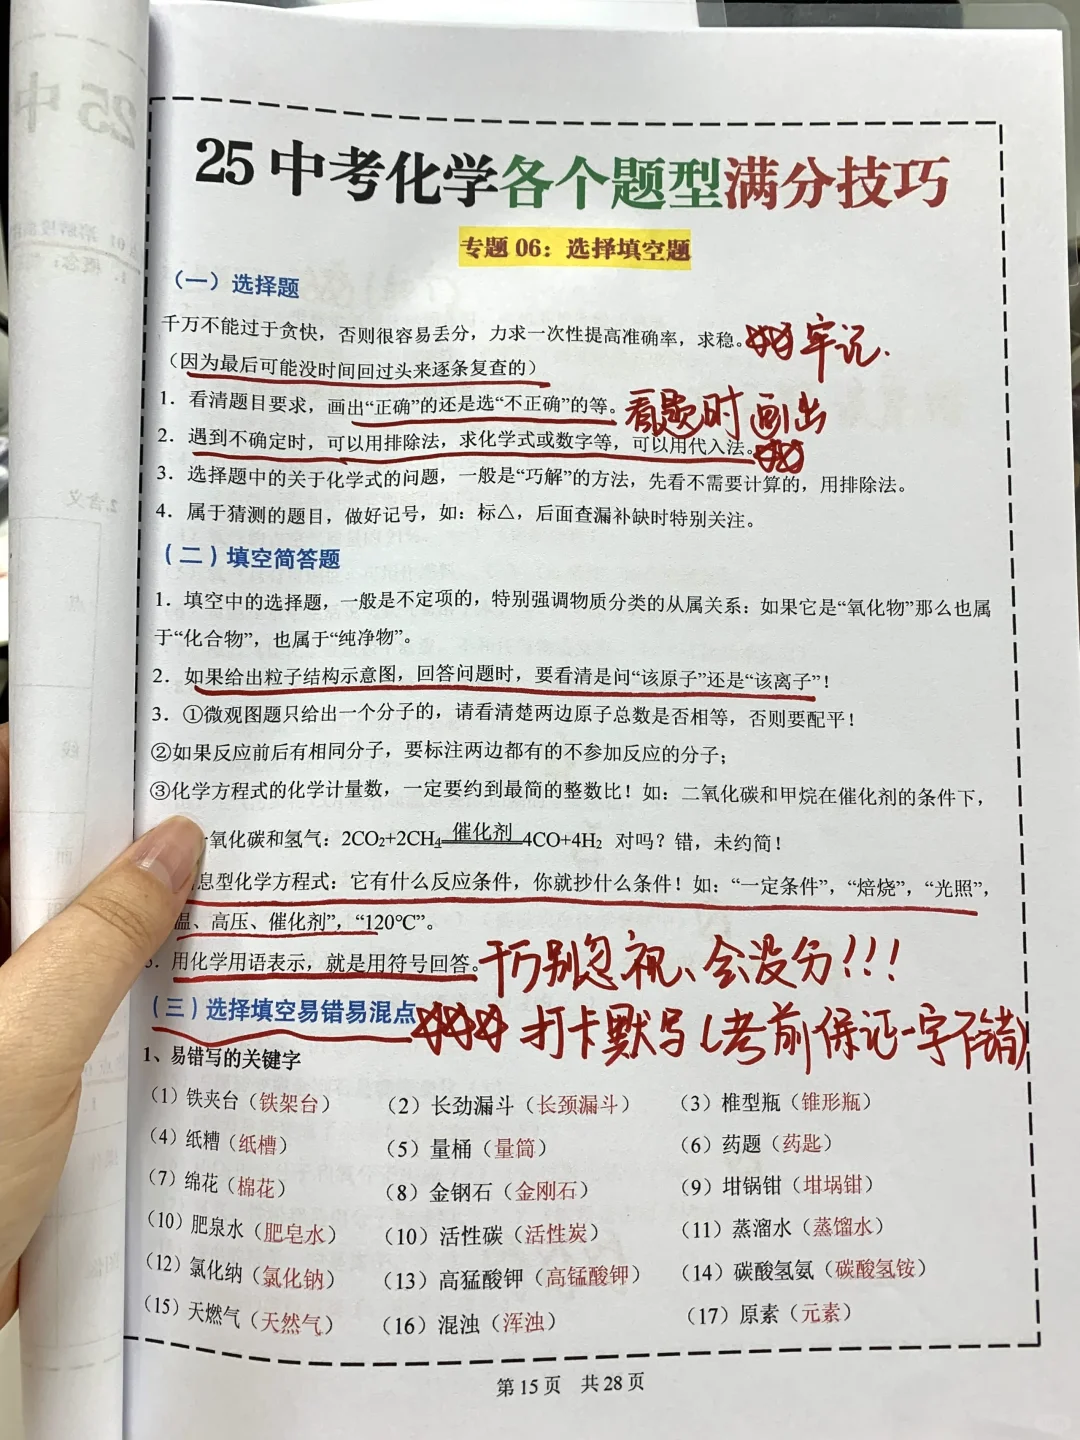 25中考化学各个题型满分技巧
专题 06：选择填空题
（一）选择题
千万不能过于贪快，否则很容易丢分，力求一次性提高准确率，求稳。牢记.
（因为最后可能没时间回过头来逐条复查的）
1. 看清题目要求，画出“正确”的还是选“不正确”的等。看题时画出
2. 遇到不确定时，可以用排除法，求化学式或数字等，可以用代入法。
3. 选择题中的关于化学式的问题，一般是“巧解”的方法，先看不需要计算的，用排除法。
4. 属于猜测的题目，做好记号，如：标△，后面查漏补缺时特别关注。
（二）填空简答题
1. 填空中的选择题，一般是不定项的，特别强调物质分类的从属关系：如果它是“氧化物”那么也属
于“化合物”，也属于“纯净物”。
2. 如果给出粒子结构示意图，回答问题时，要看清是问“该原子”还是“该离子”！
3. ①微观图题只给出一个分子的，请看清楚两边原子总数是否相等，否则要配平！
②如果反应前后有相同分子，要标注两边都有的不参加反应的分子；
③化学方程式的化学计量数，一定要约到最简的整数比！如：二氧化碳和甲烷在催化剂的条件下，
一氧化碳和氢气：2CO₂+2CH₄ 催化剂 4CO+4H₂ 对吗？错，未约简！
息型化学方程式：它有什么反应条件，你就抄什么条件！如：“一定条件”，“焙烧”，“光照”，
温、高压、催化剂”，“120℃”。
用化学用语表示，就是用符号回答。千万别忽视、会没分！！！
（三）选择填空易错易混点 打卡默写（考前保证一字不错）
1、易错写的关键字
（1）铁夹台（铁架台） （2）长劲漏斗（长颈漏斗） （3）椎型瓶（锥形瓶）
（4）纸糟（纸槽） （5）量桶（量筒） （6）药题（药匙）
（7）绵花（棉花） （8）金钢石（金刚石） （9）坩锅钳（坩埚钳）
（10）肥泉水（肥皂水） （10）活性碳（活性炭） （11）蒸溜水（蒸馏水）
（12）氯化纳（氯化钠） （13）高猛酸钾（高锰酸钾） （14）碳酸氢氨（碳酸氢铵）
（15）天燃气（天然气） （16）混浊（浑浊） （17）原素（元素）
第 15 页 共 28 页